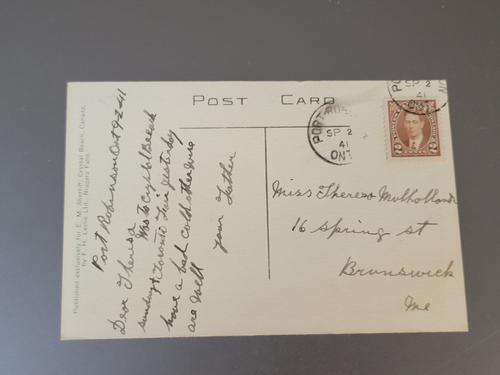 POST CARD
Port Robinson Ont 9-2-41
Dear Theresa
Was to Crystal Beach
Sunday & Toronto Fair yesterday
have a bad cold otherwise
are well
your Father
Published exclusively for E. M. Sherriff, Crystal Beach, Canada.
by F. H. Leslie Ltd., Niagara Falls.
PORT ROB
SP 2
41
ONT
PO
SP 2
41
ONT
2 2
Miss Theresa Mulholland
16 Spring St
Brunswick
Me